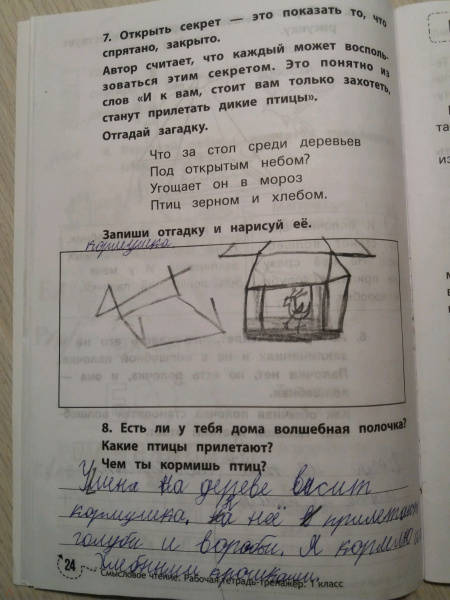 7. Открыть секрет — это показать то, что
спрятано, закрыто.
Автор считает, что каждый может восполь-
зоваться этим секретом. Это понятно из
слов «И к вам, стоит вам только захотеть,
станут прилетать дикие птицы».
Отгадай загадку.
Что за стол среди деревьев
Под открытым небом?
Угощает он в мороз
Птиц зерном и хлебом.
Запиши отгадку и нарисуй её.
кормушка
8. Есть ли у тебя дома волшебная полочка?
Какие птицы прилетают?
Чем ты кормишь птиц?
на дереве висит
кормушка. На неё прилетают
голуби и воробьи. Я кормлю их
хлебными крошками.
24 Смысловое чтение. Рабочая тетрадь-тренажёр. 1 класс